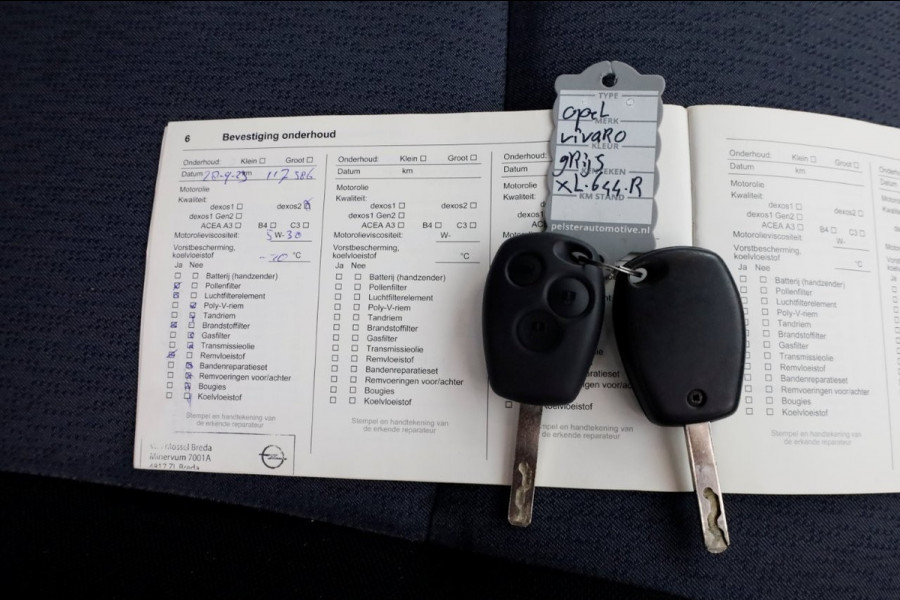 6 Bevestiging onderhoud
Onderhoud: Klein ☐ Groot ☐
Datum 117 386
Motorolie
Kwaliteit:
dexos1 ☐ dexos2 ☒
dexos1 Gen2 ☐
ACEA A3 ☐ B4 ☐ C3 ☐
Motorolieviscositeit: 5 W-30
Vorstbescherming,
koelvloeistof -20 °C
Ja Nee
Batterij (handzender)
Pollenfilter
Luchtfilterelement
Poly-V-riem
Tandriem
Brandstoffilter
Gasfilter
Transmissieolie
Remvloeistof
Bandenreparatieset
Remvoeringen voor/achter
Bougies
Koelvloeistof
Stempel en handtekening van
de erkende reparateur
Mostol Breda
Minervum 7001A
Onderhoud: Klein ☐ Groot ☐
Datum km
Motorolie
Kwaliteit:
dexos1 ☐ dexos2 ☐
dexos1 Gen2 ☐
ACEA A3 ☐ B4 ☐ C3 ☐
Motorolieviscositeit: W-
Vorstbescherming,
koelvloeistof °C
Ja Nee
Batterij (handzender)
Pollenfilter
Luchtfilterelement
Poly-V-riem
Tandriem
Brandstoffilter
Gasfilter
Transmissieolie
Remvloeistof
Bandenreparatieset
Remvoeringen voor/achter
Bougies
Koelvloeistof
Stempel en handtekening van
de erkende reparateur
Onderhoud:
Datum
Motorolie
Kwaliteit:
TYPE
opel
MERK
vivaRO
KLEUR
gRijs
XL.644.R
KM STAND
pelsterautomotive.nl
Onderhoud: Klein ☐ Groot ☐
Datum km
Motorolie
Kwaliteit:
dexos1 ☐ dexos2 ☐
B4 ☐ C3 ☐
W-
°C
Ja Nee
Batterij (handzender)
Pollenfilter
Luchtfilterelement
Poly-V-riem
Tandriem
Brandstoffilter
Gasfilter
Transmissieolie
Remvloeistof
Bandenreparatieset
Remvoeringen voor/achter
Bougies
Koelvloeistof
Stempel en handtekening van
de erkende reparateur